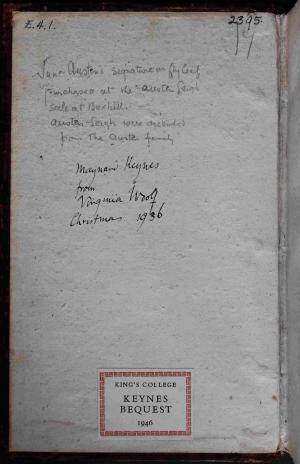 E.4.1.
2395
Jane Austen's signature on fly leaf
purchased at the Austen Leigh
sale at Bexhill.
Austen-Leigh were descended
from the Austen family
Maynard Keynes
from
Virginia Woolf
Christmas 1936
KING'S COLLEGE
KEYNES
BEQUEST
1946